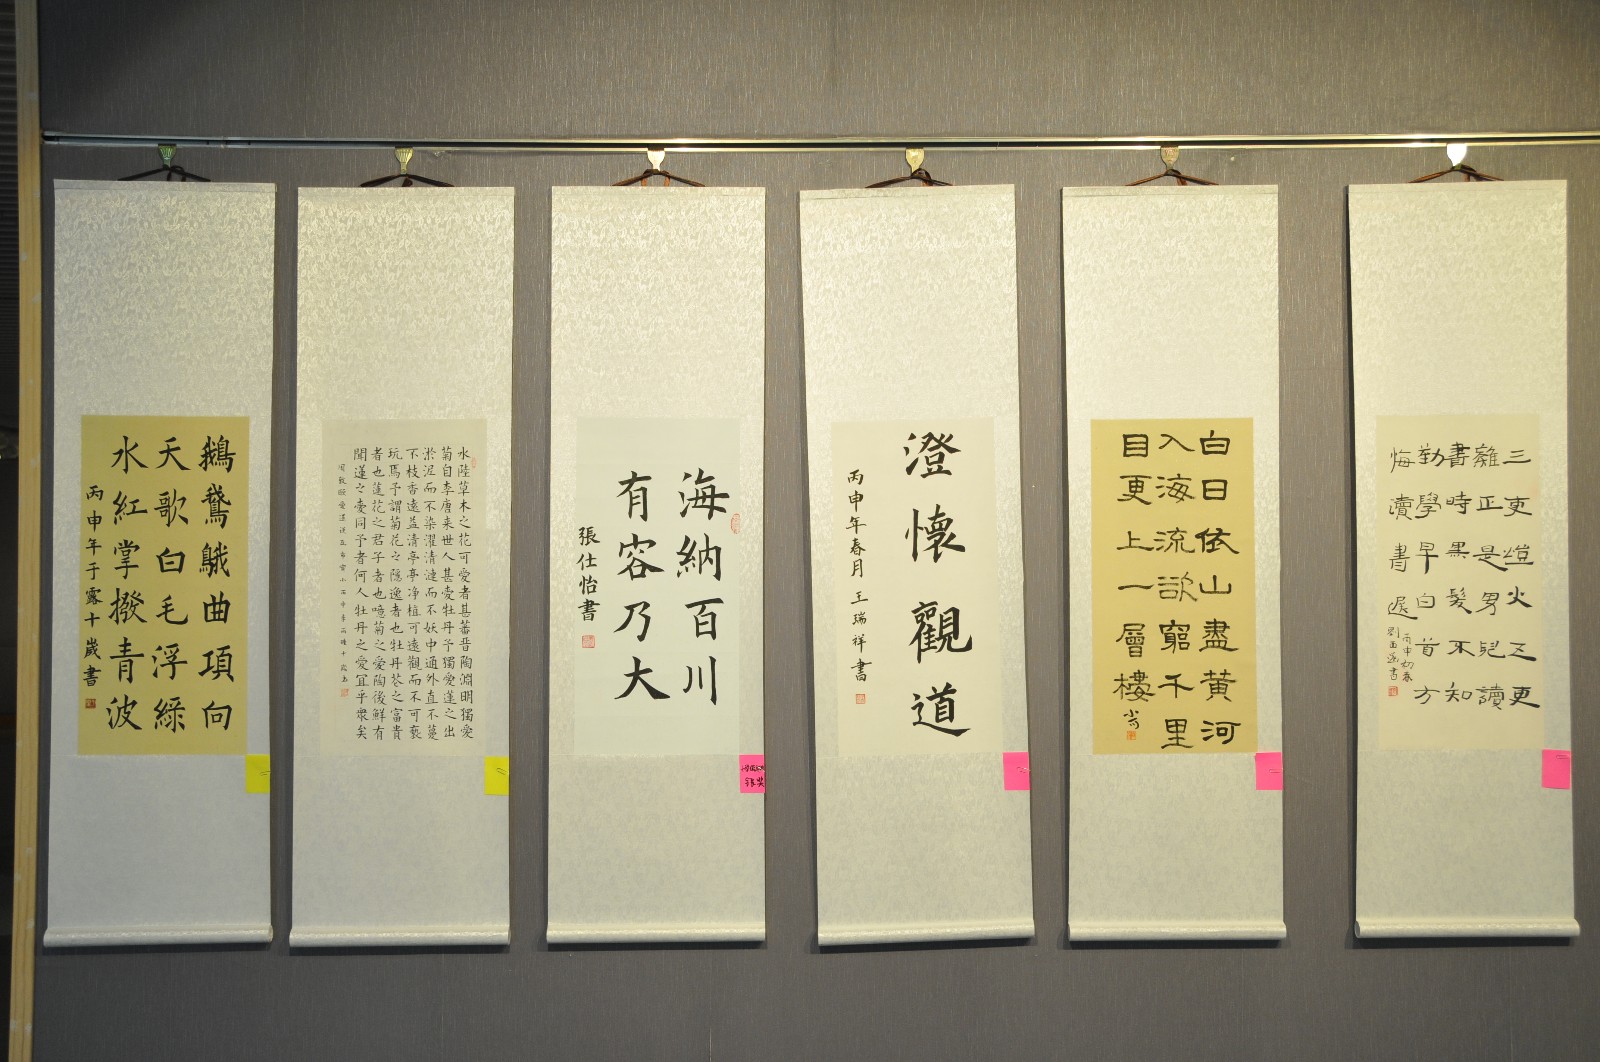 鵝鵞䳘曲項向
天歌白毛浮綠
水紅掌撥青波
丙申年于露十歲書
水陸草木之花可愛者甚蕃晉陶淵明獨愛
菊自李唐来世人甚愛牡丹予獨愛蓮之出
淤泥而不染濯清漣而不妖中通外直不蔓
不枝香遠益清亭亭净植可遠觀而不可褻
玩焉予謂菊花之隱逸者也牡丹花之富貴
者也蓮花之君子者也噫菊之愛陶後鮮有
聞蓮之愛同予者何人牡丹之愛宜乎衆矣
海納百川
有容乃大
張仕怡書
澄懷觀道
丙申年春月王瑞祥書
白日依山盡黄河
入海流欲窮千里
目更上一層樓
三更燈火五更
雞正是男兒讀
書時黑髮不知
勤學早白首方
悔讀書遲
丙申初春